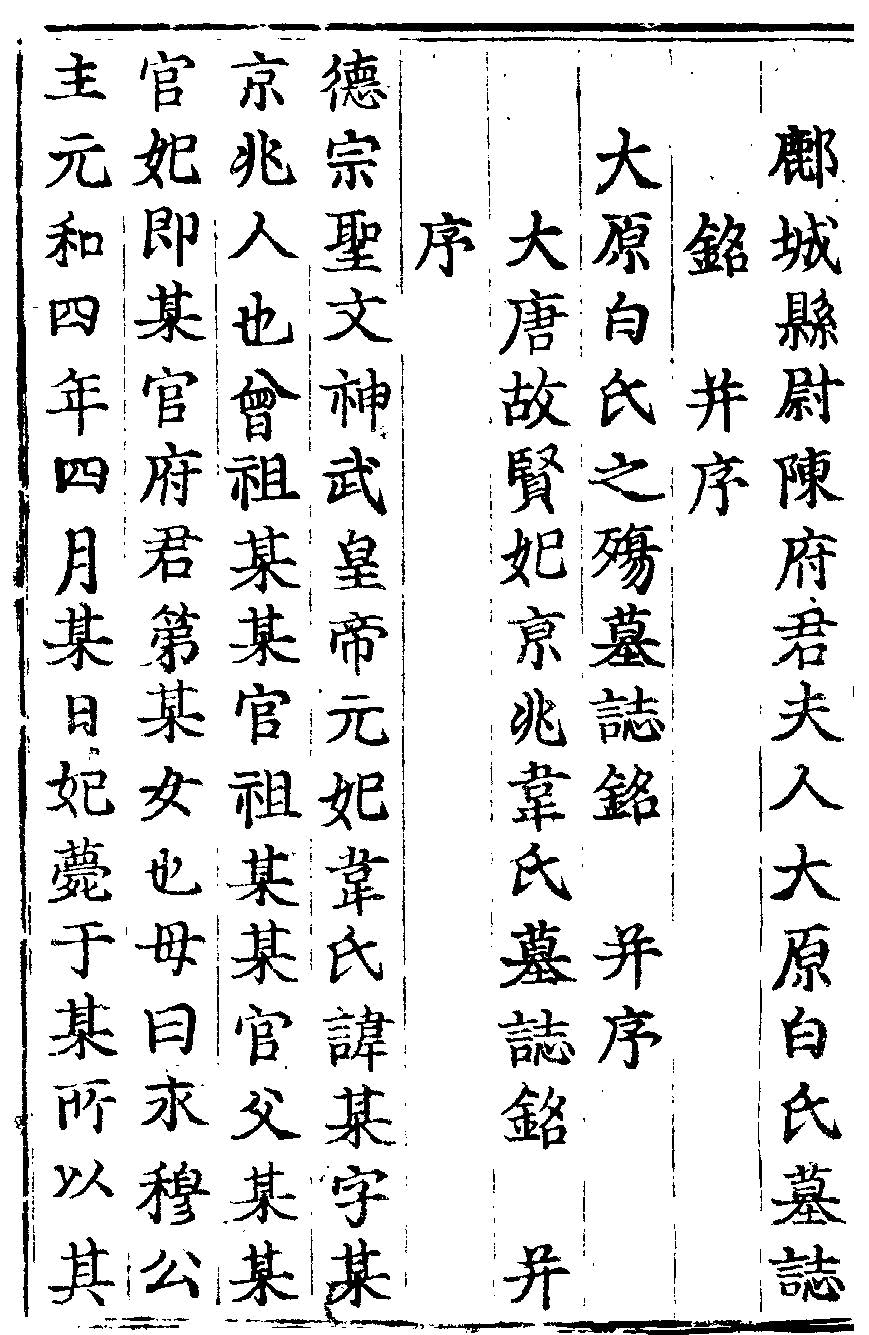 鄜城縣尉陳府君夫人大原白氏墓誌
銘　并序
大原白氏之殤墓誌銘　并序
大唐故賢妃京兆韋氏墓誌銘　并
序
德宗聖文神武皇帝元妃韋氏諱某字某
京兆人也曾祖某某官祖某某官父某某
官妃即某官府君第某女也母曰永穆公
主元和四年四月某日妃薨于某所以其